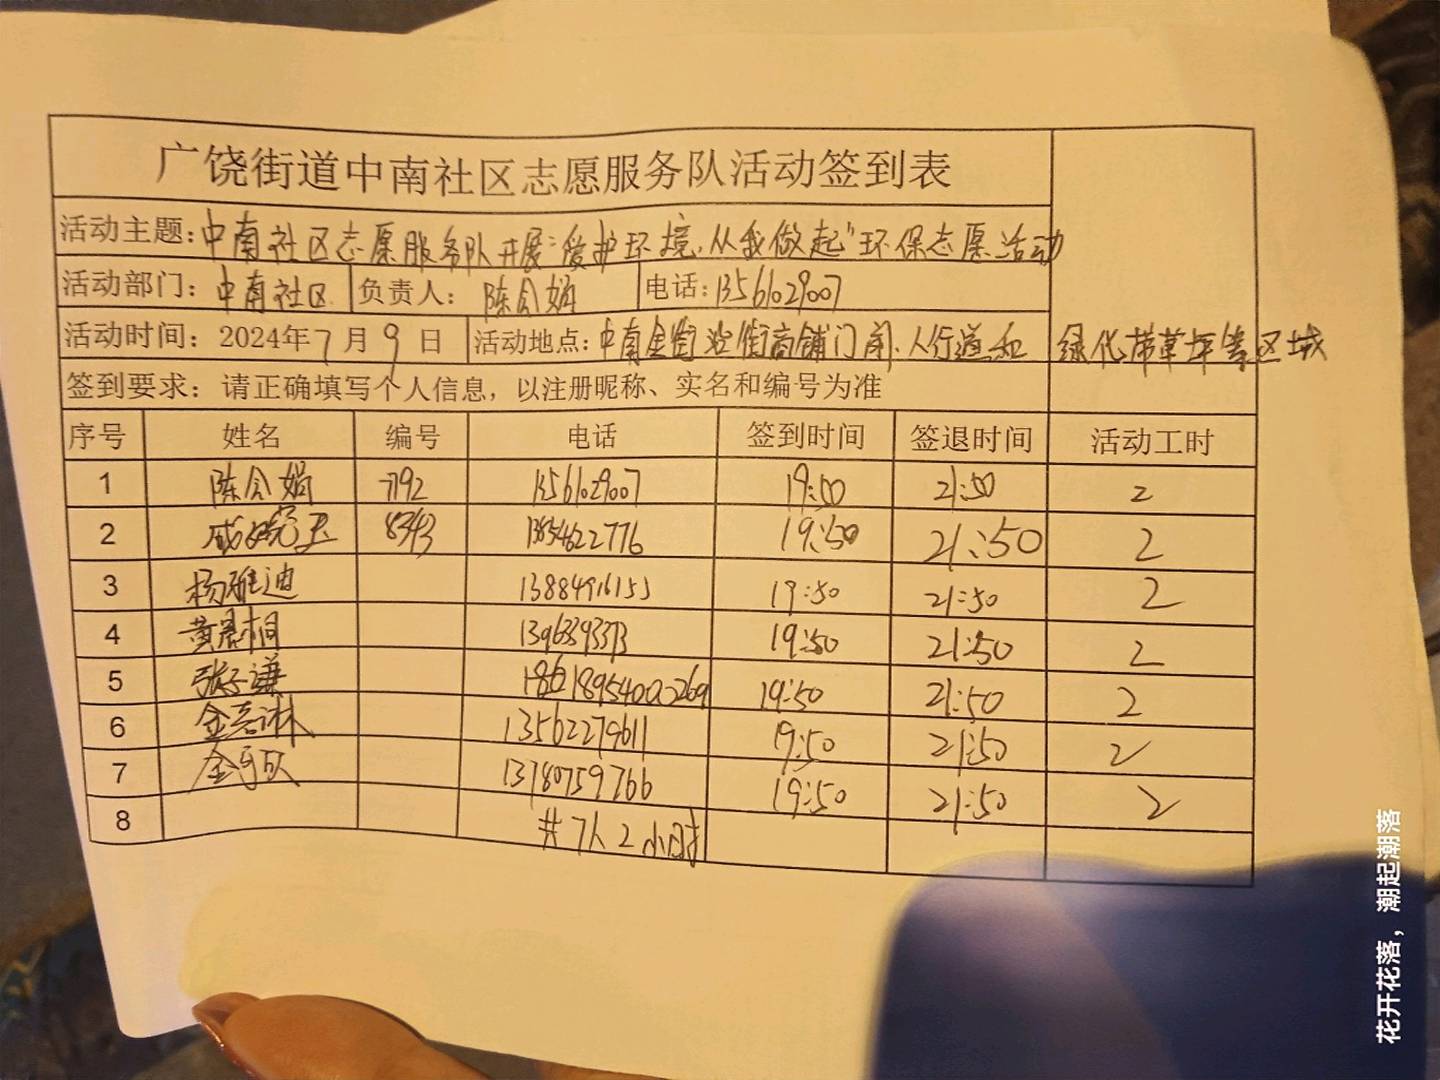 广饶街道中南社区志愿服务队活动签到表
活动主题：中南社区志愿服务队开展“爱护环境、从我做起”环保志愿活动
活动部门：中南社区 负责人：陈会娟 电话：13561029007
活动时间：2024年7月9日 活动地点：中南金街沿街商铺门前、人行道和绿化带草坪等区域
签到要求：请正确填写个人信息，以注册昵称、实名和编号为准
序号 姓名 编号 电话 签到时间 签退时间 活动工时
1 陈会娟 7192 13561029007 19:50 21:50 2
2 8343 13854622776 19:50 21:50 2
3 杨雅迪 19:50 21:50 2
4 黄晨桐 19:50 21:50 2
5 张子谦 19:50 21:50 2
6 13562279611 19:50 21:50 2
7 13780759766 19:50 21:50 2
8 共7人2小时
花开花落，潮起潮落